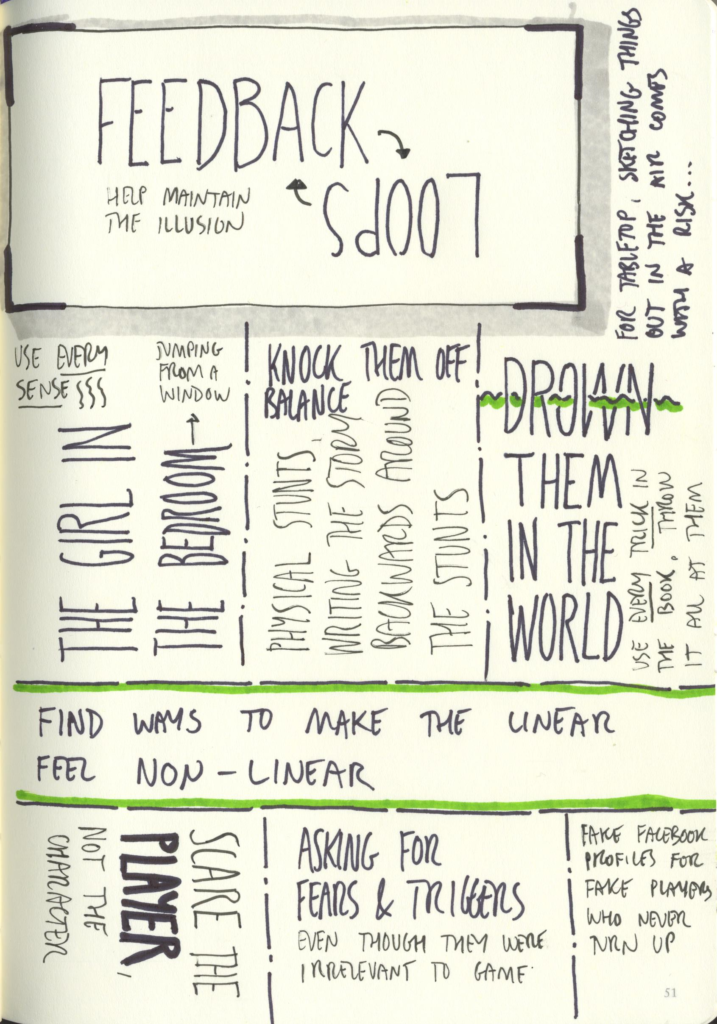 FEEDBACK
LOOPS
HELP MAINTAIN
THE ILLUSION
FOR TABLETOP, SKETCHING THINGS
OUT IN THE AIR COMES
WITH A RISK...
USE EVERY
SENSE
JUMPING
FROM A
WINDOW
THE GIRL IN
THE BEDROOM
KNOCK THEM OFF
BALANCE
PHYSICAL STUNTS,
WRITING THE STORY
BACKWARDS AROUND
THE STUNTS
DROWN
THEM
IN THE
WORLD
USE EVERY TRICK IN
THE BOOK, THROW
IT ALL AT THEM
FIND WAYS TO MAKE THE LINEAR
FEEL NON-LINEAR
SCARE THE
PLAYER,
NOT THE
CHARACTER
ASKING FOR
FEARS & TRIGGERS
EVEN THOUGH THEY WERE
IRRELEVANT TO GAME.
FAKE FACEBOOK
PROFILES FOR
FAKE PLAYERS
WHO NEVER
TURN UP
51